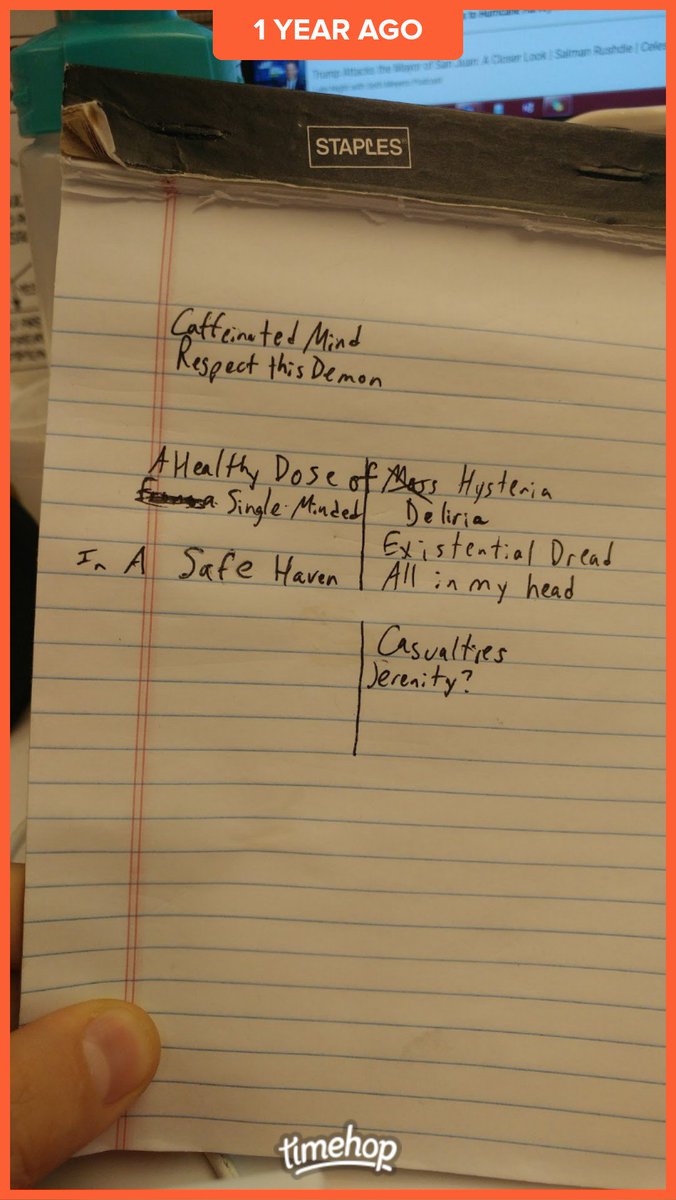 1 YEAR AGO
Trump Attacks the Mayor of San Juan: A Closer Look | Salman Rushdie | Celes
STAPLES
Caffeinated Mind
Respect this Demon
A Healthy Dose of Mass Hysteria
a Single-Minded Deliria
Existential Dread
In A Safe Haven All in my head
Casualties
Serenity?
timehop